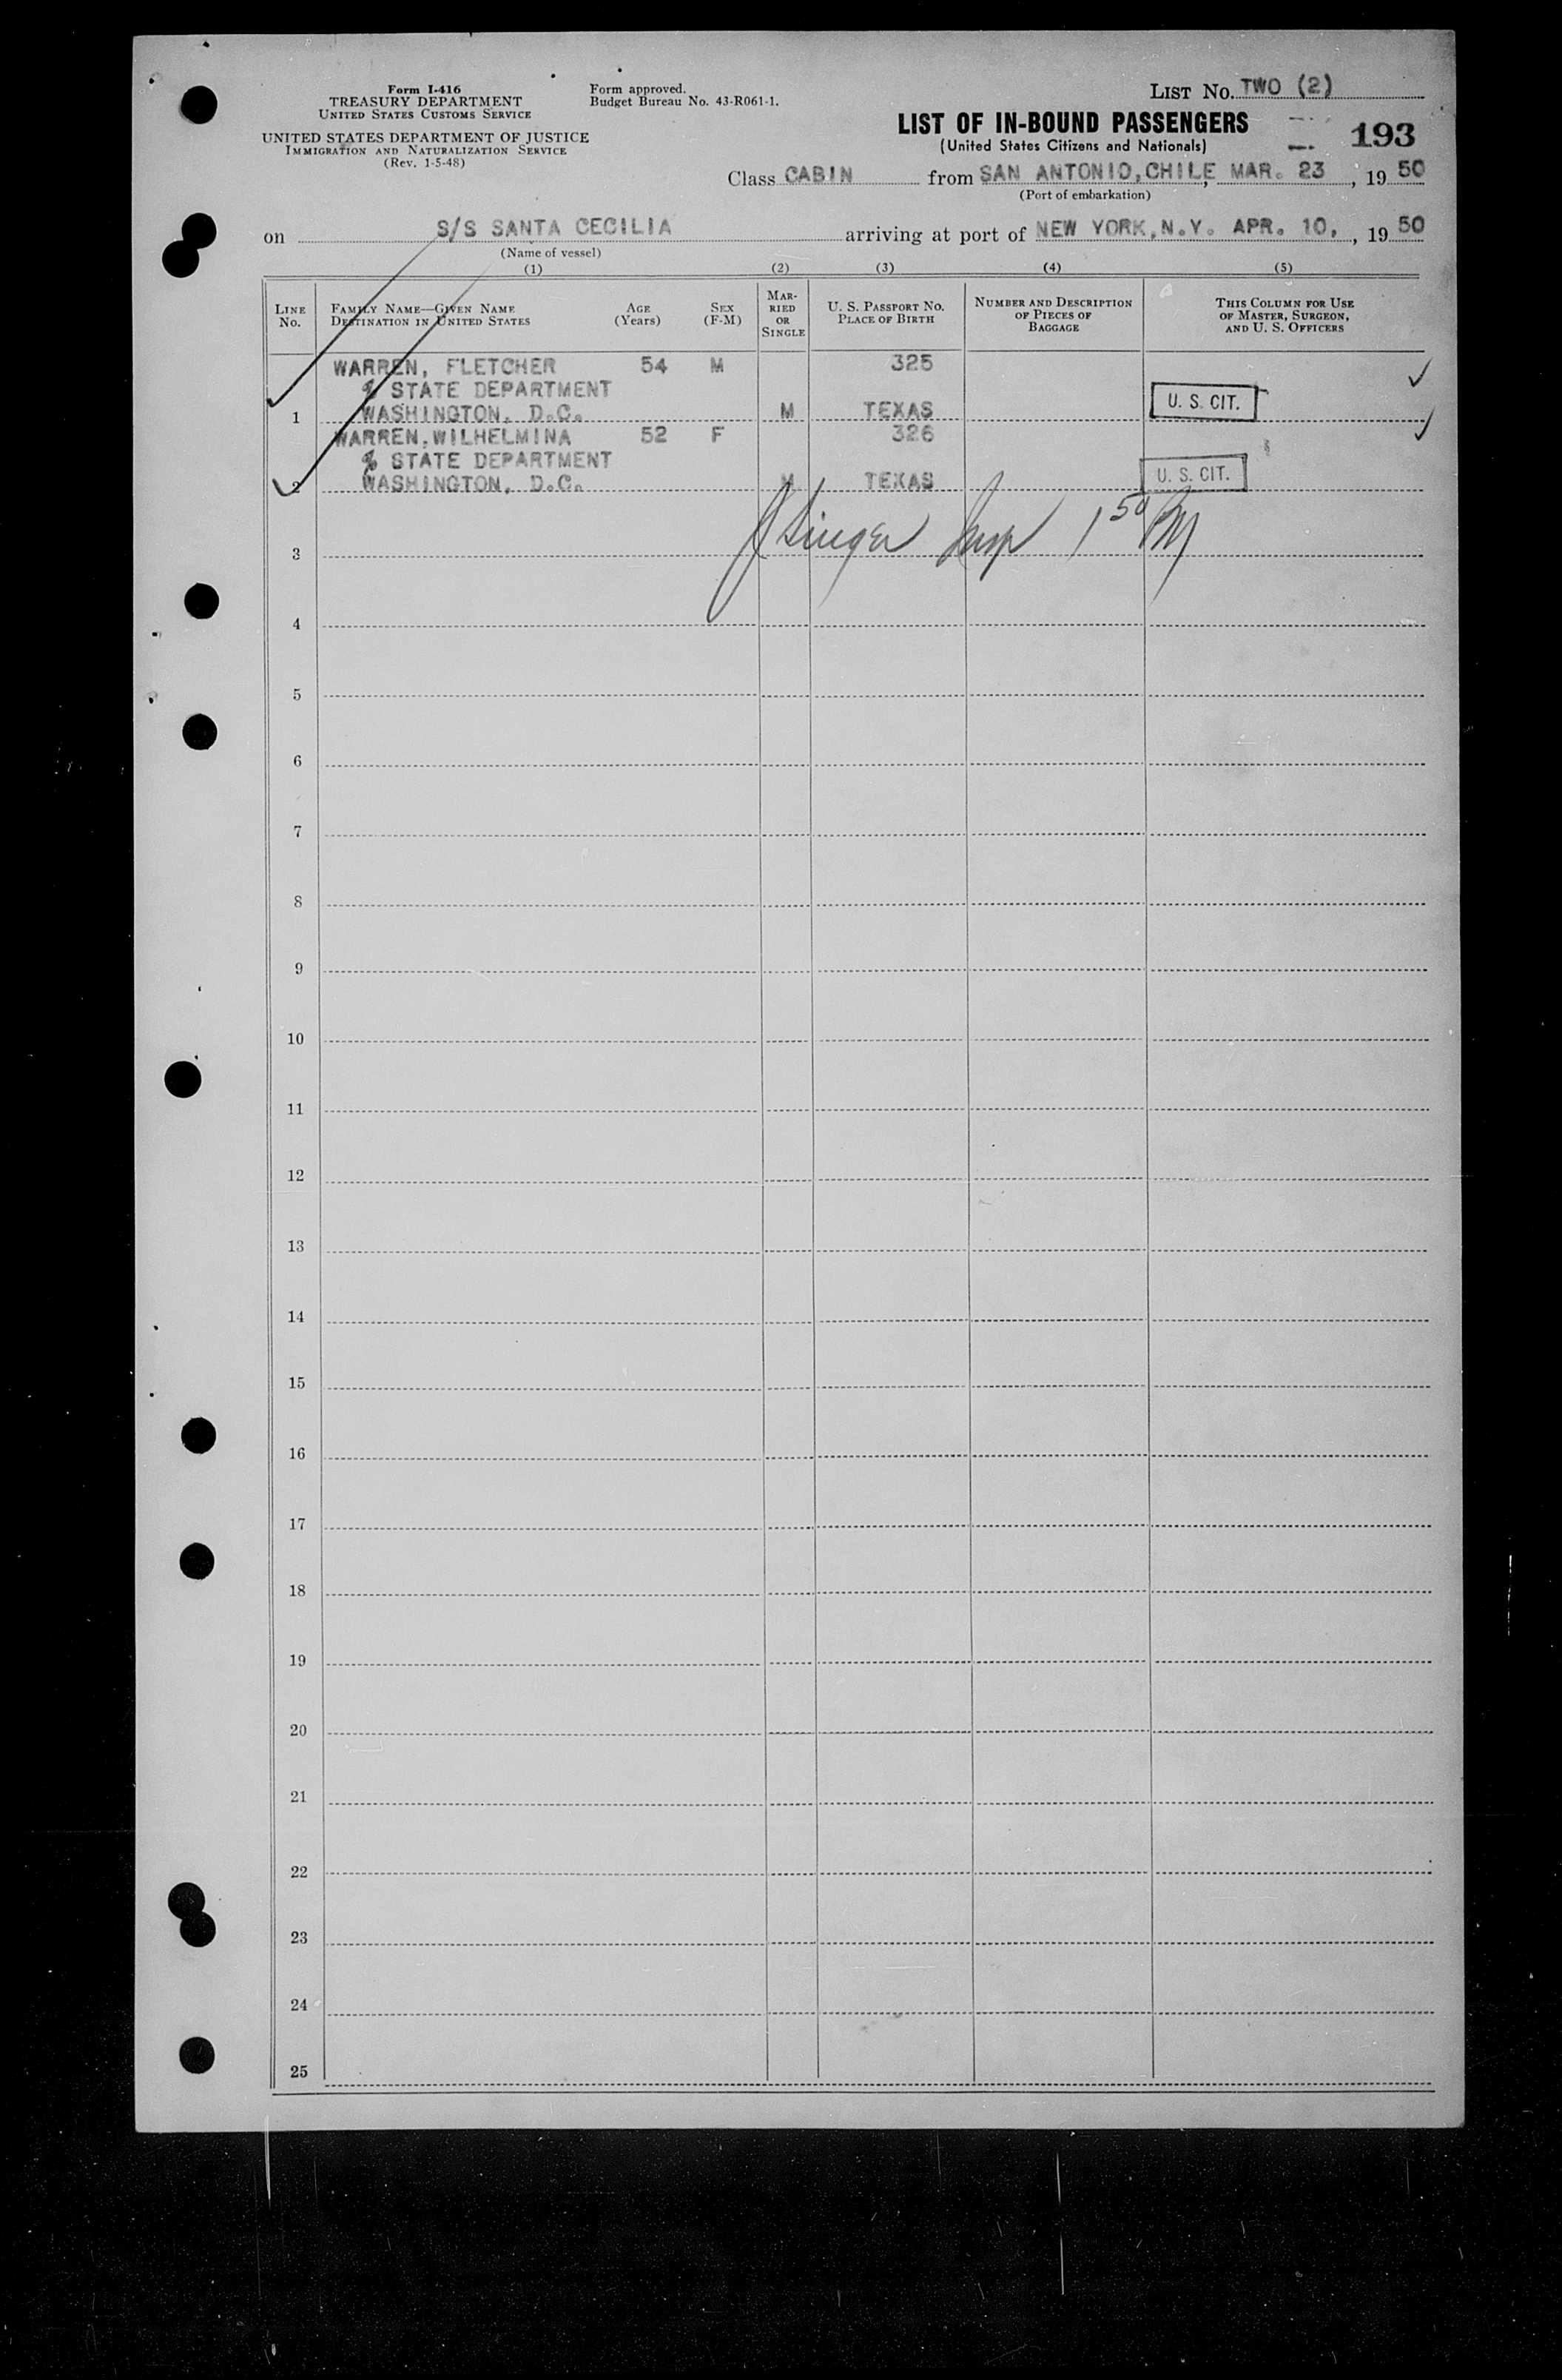 Form I-416
TREASURY DEPARTMENT
UNITED STATES CUSTOMS SERVICE
UNITED STATES DEPARTMENT OF JUSTICE
IMMIGRATION AND NATURALIZATION SERVICE
(Rev. 1-5-48)
Form approved.
Budget Bureau No. 43-R061-1.
LIST NO. TWO (2)
LIST OF IN-BOUND PASSENGERS
(United States Citizens and Nationals)
193
Class CABIN from SAN ANTONIO, CHILE, MAR. 23, 1950
(Port of embarkation)
on S/S SANTA CECILIA arriving at port of NEW YORK, N.Y. APR. 10, , 1950
(Name of vessel)
(1) (2) (3) (4) (5)
LINE NO.
FAMILY NAME—GIVEN NAME
DESTINATION IN UNITED STATES
AGE
(Years)
SEX
(F-M)
MAR-
RIED
OR
SINGLE
U. S. PASSPORT NO.
PLACE OF BIRTH
NUMBER AND DESCRIPTION
OF PIECES OF
BAGGAGE
THIS COLUMN FOR USE
OF MASTER, SURGEON,
AND U. S. OFFICERS
WARREN, FLETCHER 54 M 325
% STATE DEPARTMENT
1 WASHINGTON, D.C. M TEXAS U. S. CIT.
WARREN, WILHELMINA 52 F 326
% STATE DEPARTMENT
2 WASHINGTON, D.C. M TEXAS U. S. CIT.
3 Singer Insp 1 50 PM
4
5
6
7
8
9
10
11
12
13
14
15
16
17
18
19
20
21
22
23
24
25